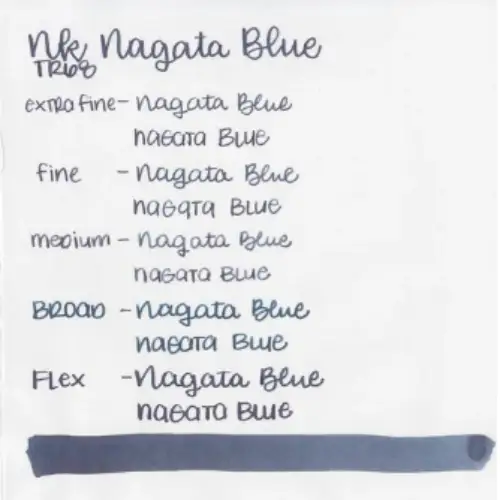 NK Nagata Blue
TR68
extra fine - Nagata Blue
Nagata Blue
fine - Nagata Blue
Nagata Blue
medium - Nagata Blue
Nagata Blue
BROAD - Nagata Blue
Nagata Blue
Flex - Nagata Blue
Nagata Blue